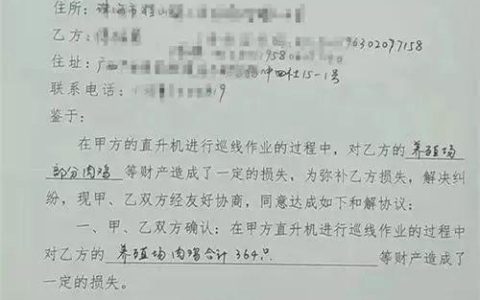 住所：珠海市香山
乙方：
96302097158
住址：广 中四社15-1号
联系电话： 9
鉴于：
在甲方的直升机进行巡线作业的过程中，对乙方的养殖场
部分肉鸡等财产造成了一定的损失，为弥补乙方损失，解决纠
纷，现甲、乙双方经友好协商，同意达成如下和解协议：
一、甲、乙双方确认：在甲方直升机进行巡线作业的过程中
对乙方的养殖场肉鸡合计364只等财产造成了
一定的损失。